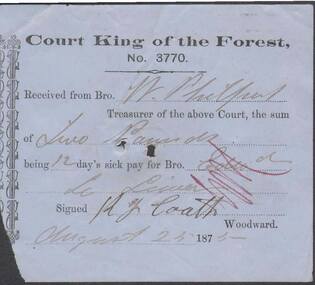 Court King of the Forest,
No. 3770.
Received from Bro. W. Philpot
Treasurer of the above Court, the sum
of Two Pounds
being 12 day's sick pay for Bro.
Signed Coath
Woodward.
August 25 1875